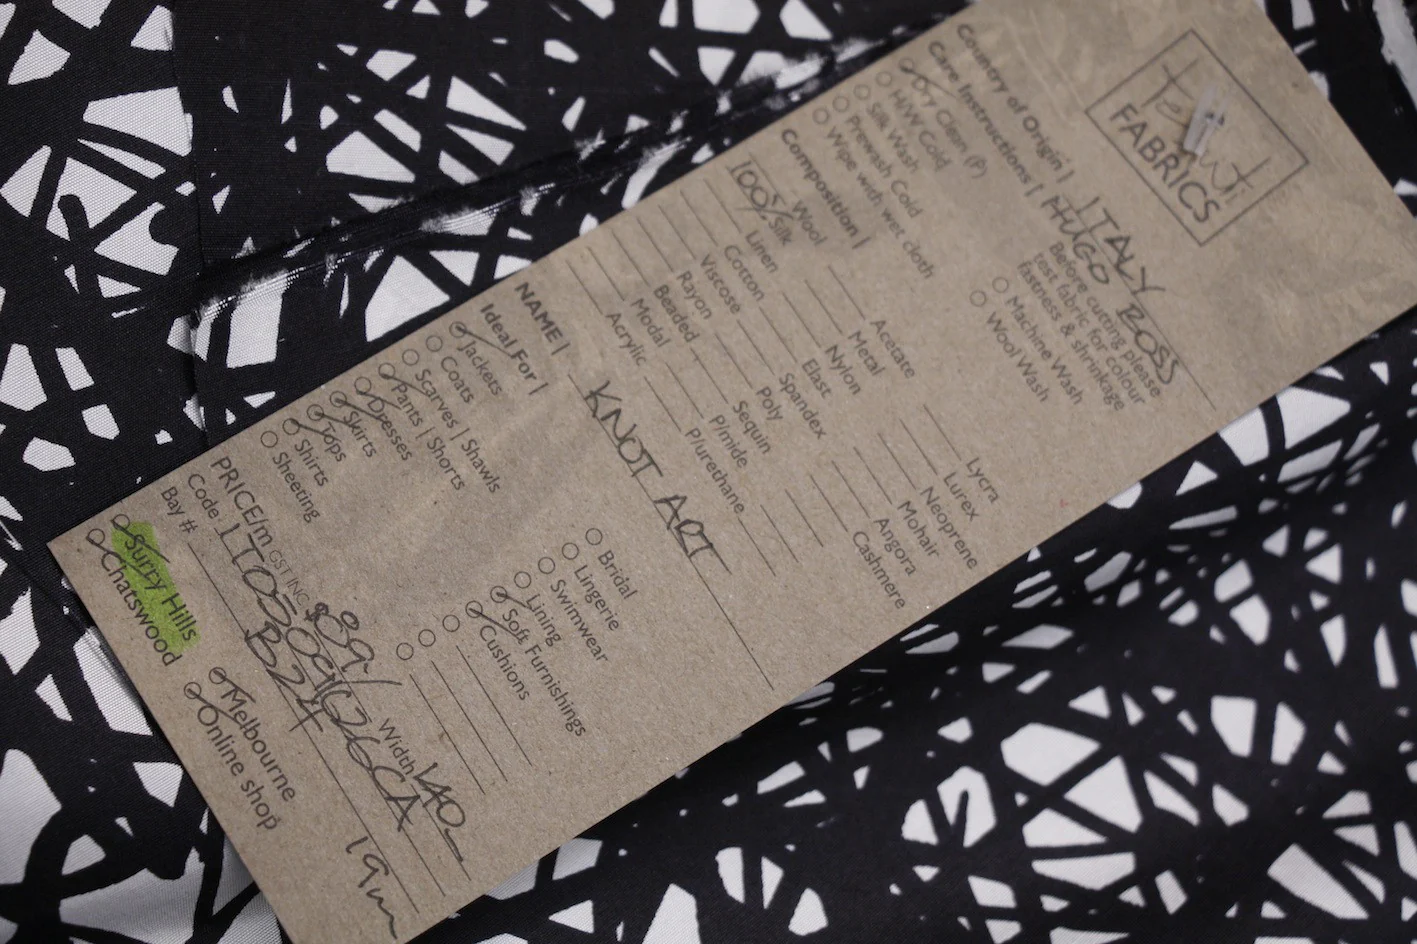 Tessuti
FABRICS
Country of Origin | ITALY
HUGO BOSS
Care Instructions |
Dry Clean (P)
H/W Cold
Silk Wash
Prewash Cold
Wipe with wet cloth
Before cutting please
test fabric for colour
fastness & shrinkage
Machine Wash
Wool Wash
Composition |
Wool
100% Silk
Linen
Cotton
Viscose
Rayon
Beaded
Modal
Acrylic
Acetate
Metal
Nylon
Elast
Spandex
Poly
Sequin
P/mide
P/urethane
Lycra
Lurex
Neoprene
Mohair
Angora
Cashmere
NAME | KNOT ART
Ideal For |
Jackets
Coats
Scarves | Shawls
Pants | Shorts
Dresses
Skirts
Tops
Shirts
Sheeting
Bridal
Lingerie
Swimwear
Lining
Soft Furnishings
Cushions
PRICE/m GST INC $89/ Width 140
Code
Bay # B24 19m
Surry Hills
Chatswood
Melbourne
Online shop